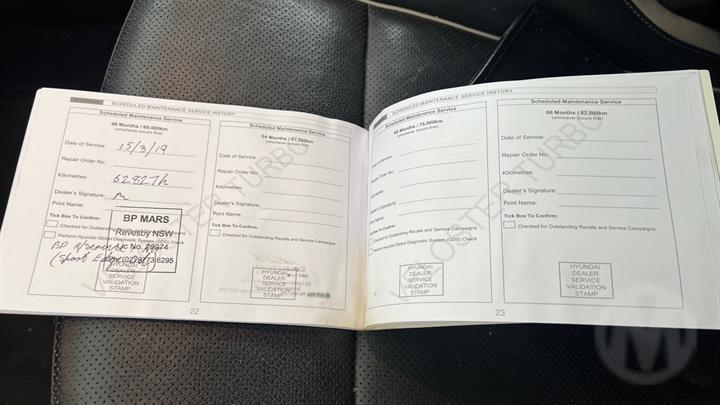 SCHEDULED MAINTENANCE SERVICE HISTORY
Scheduled Maintenance Service
48 Months / 60,000km
(whichever occurs first)
Date of Service: 15/3/19
Repair Order No:
Kilometres: 62827
Dealer's Signature:
Print Name:
Tick Box To Confirm:
Checked for Outstanding
Perform Hyundai Global Diagnostic System (GDS) Check
BP MARS
Revesby NSW
BP
HYUNDAI
DEALER
SERVICE
VALIDATION
STAMP
Scheduled Maintenance Service
54 Months / 67,500km
(whichever occurs first)
Date of Service:
Repair Order No:
Kilometres:
Dealer's Signature:
Print Name:
Tick Box To Confirm:
Checked for Outstanding Recalls and Service Campaigns
HYUNDAI
DEALER
SERVICE
VALIDATION
STAMP
22
VELOSTER TURBO
SCHEDULED MAINTENANCE SERVICE HISTORY
Scheduled Maintenance Service
60 Months / 75,000km
(whichever occurs first)
Date of Service:
Repair Order No:
Kilometres:
Dealer's Signature:
Print Name:
Tick Box To Confirm:
Checked for Outstanding Recalls and Service Campaigns
Perform Hyundai Global Diagnostic System (GDS) Check
HYUNDAI
DEALER
SERVICE
VALIDATION
STAMP
Scheduled Maintenance Service
66 Months / 82,500km
(whichever occurs first)
Date of Service:
Repair Order No:
Kilometres:
Dealer's Signature:
Print Name:
Tick Box To Confirm:
Checked for Outstanding Recalls and Service Campaigns
HYUNDAI
DEALER
SERVICE
VALIDATION
STAMP
23
VELOSTER TURBO
M